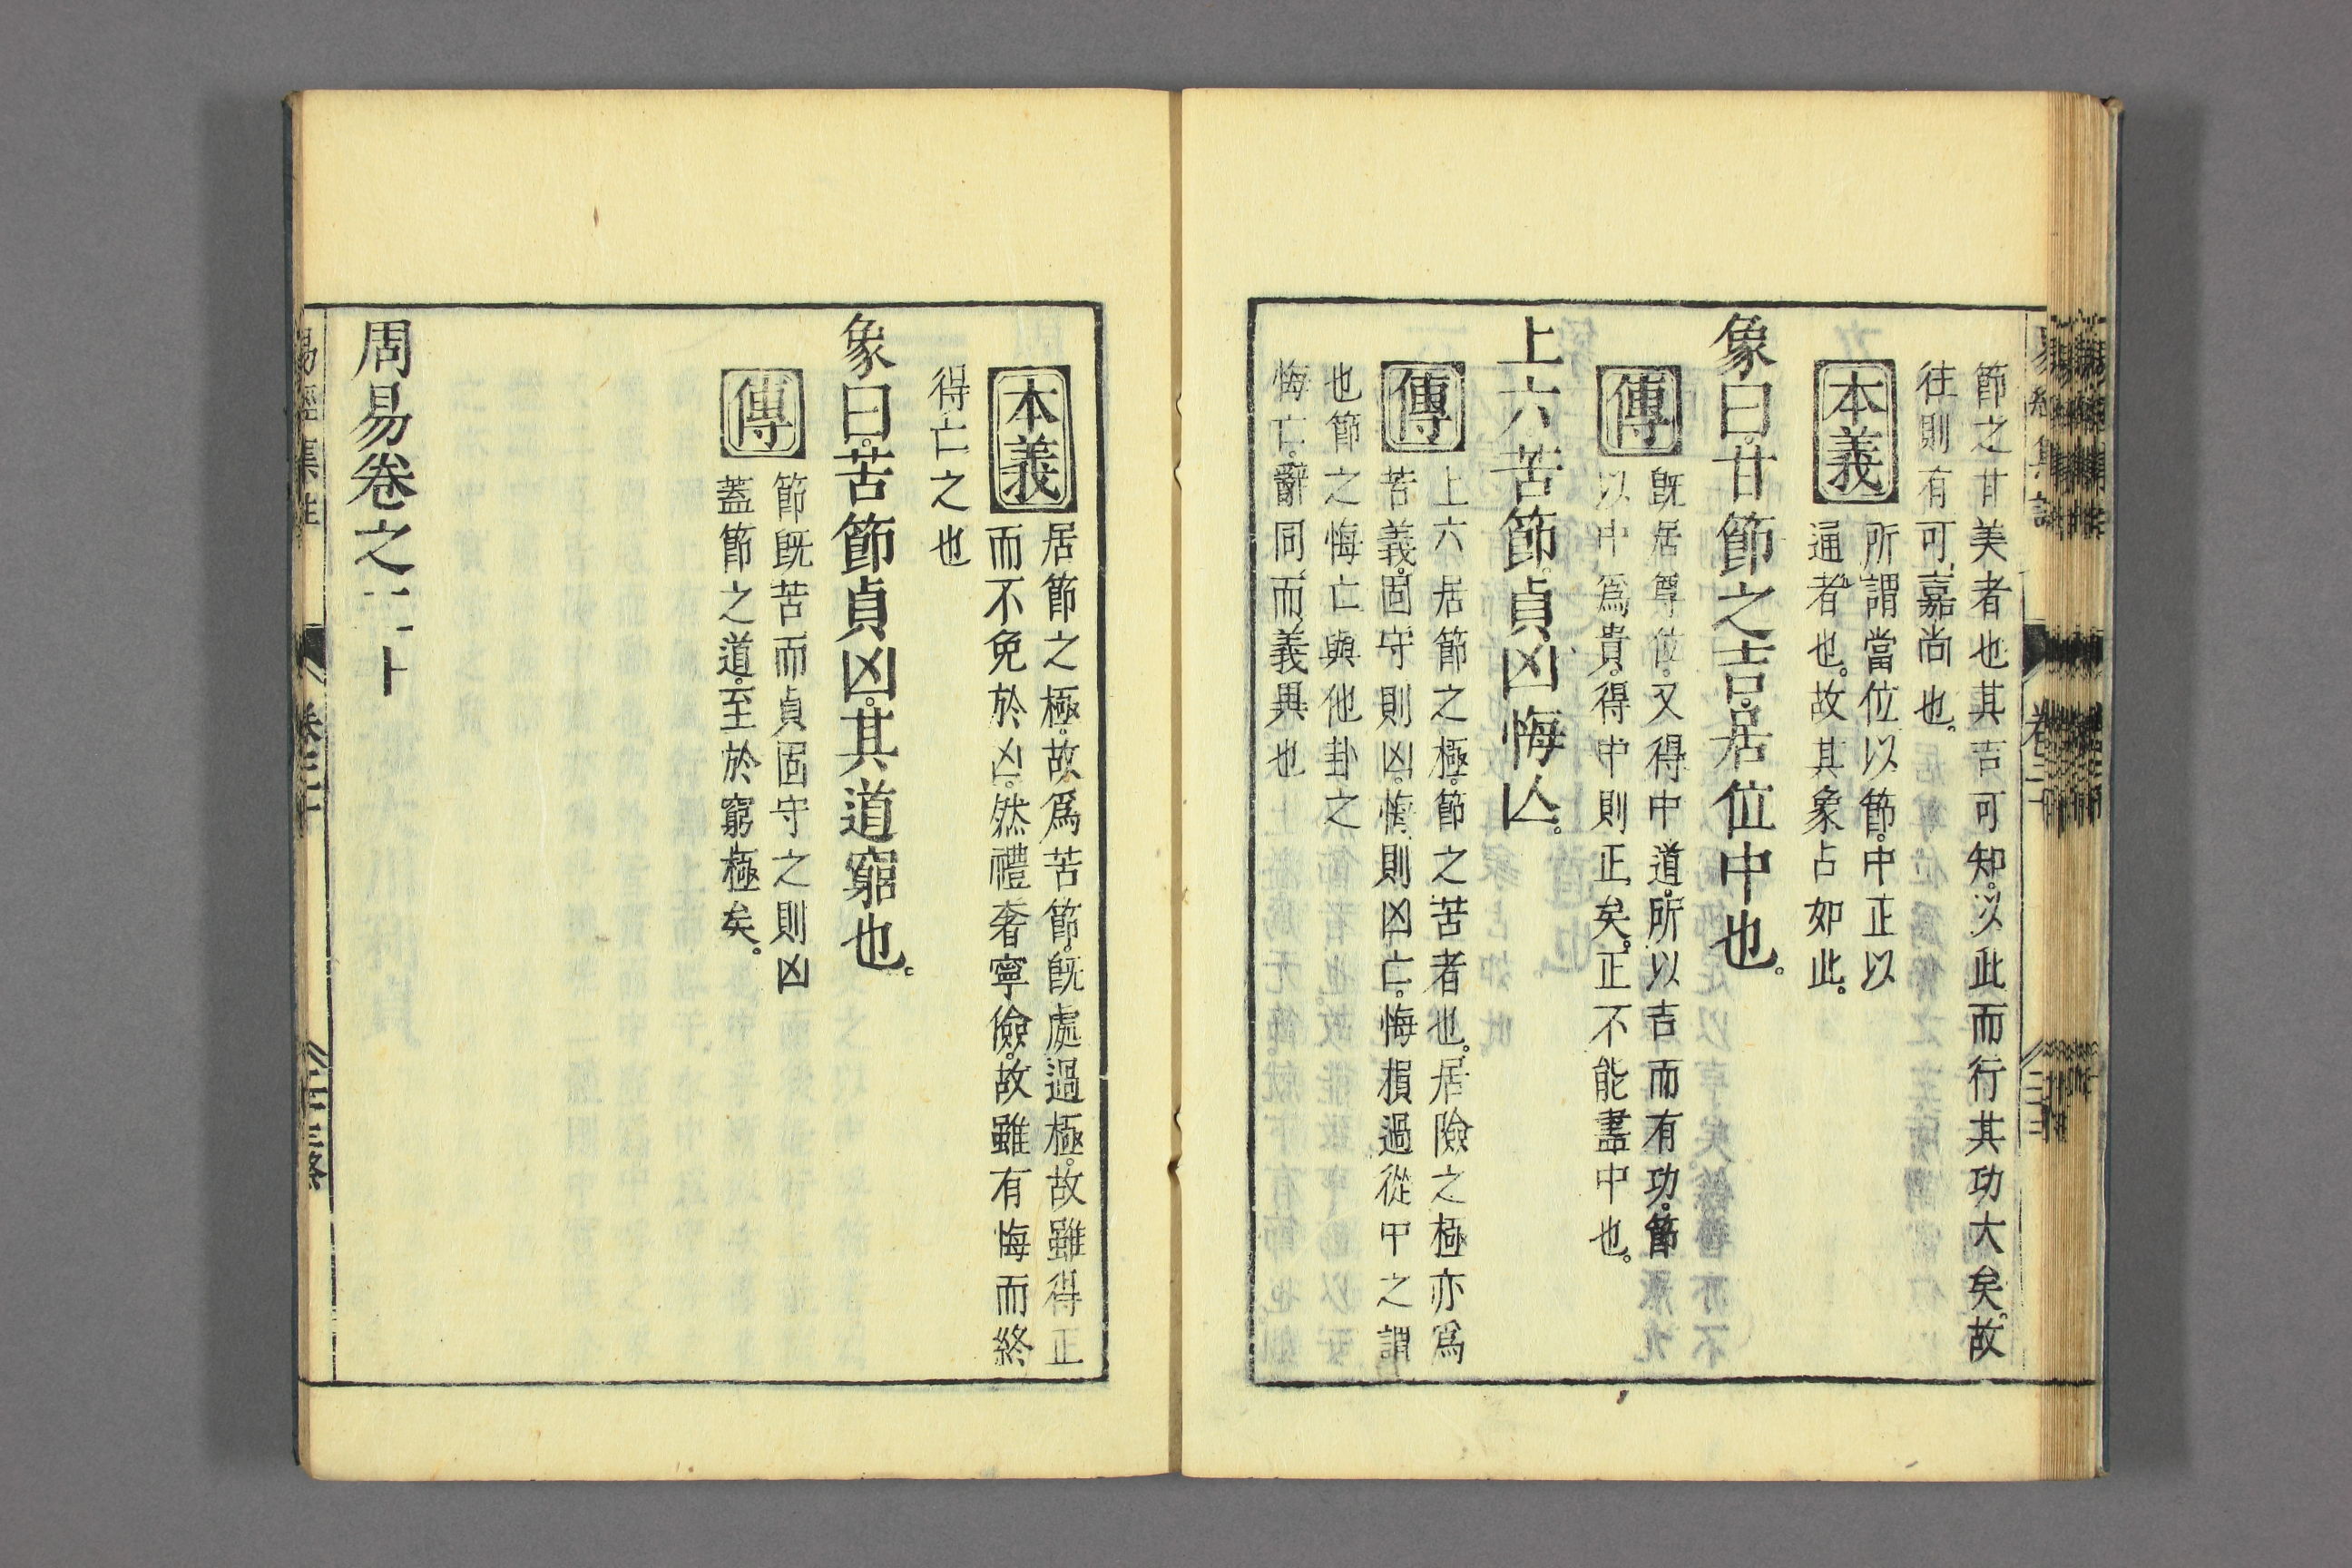 節之甘美者也其吉可知。以此而行其功大矣。故
往則有可嘉尚也。
本義
所謂當位以節。中正以
通者也。故其象占如此。
象曰。甘節之吉。居位中也。
傳
既居尊位。又得中道。所以吉而有功。節
以中爲貴。得中則正矣。正不能盡中也。
上六苦節。貞凶悔亾。
傳
上六居節之極。節之苦者也。居險之極亦爲
苦義。固守則凶。悔則凶亡。悔損過從中之謂
也節之悔亡與他卦之
悔亡。辭同而義異也
本義
居節之極。故爲苦節。既處過極。故雖得正
而不免於凶。然禮奢寧儉。故雖有悔而終
得亡之也
象曰。苦節貞凶。其道窮也。
傳
節既苦而貞固守之則凶
蓋節之道。至於窮極矣。
周易卷之二十
易經集註
卷二十